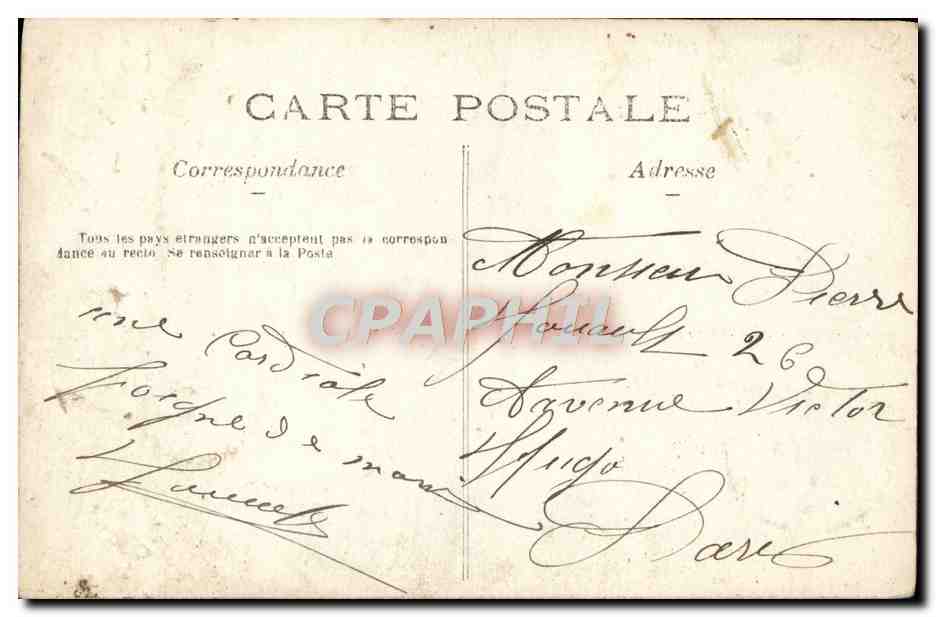 CARTE POSTALE
Correspondance
Adresse
Tous les pays étrangers n'acceptent pas la correspon
dance au recto. Se renseigner à la Poste
une Cordiale
Poigné de main
Monsieur Pierre
26
Avenue Victor
Hugo
Paris
CPAPHIL